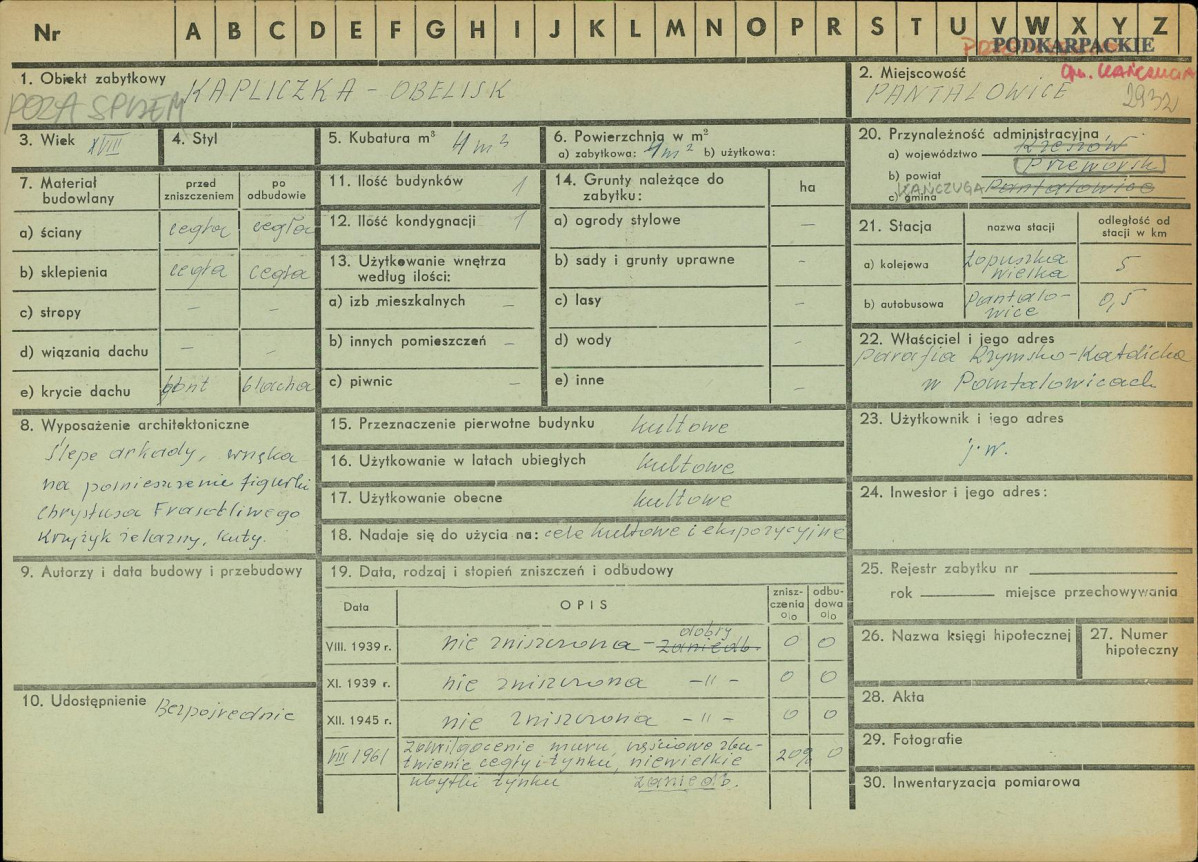 Nr A B C D E F G H I J K L M N O P R S T U V W X Y Z
PODKARPACKIE
1. Obiekt zabytkowy KAPLICZKA - OBELISK
POZA SPISEM
2. Miejscowość gm. KAŃCZUGA
PANTALOWICE 2932
3. Wiek XVIII
4. Styl
5. Kubatura m³ 4 m³
6. Powierzchnia w m²
a) zabytkowa: 4 m² b) użytkowa:
7. Materiał budowlany
przed zniszczeniem
po odbudowie
a) ściany cegła cegła
b) sklepienia cegła cegła
c) stropy – –
d) wiązania dachu – –
e) krycie dachu gont blacha
8. Wyposażenie architektoniczne
Ślepe arkady, wnęka
na pomieszczenie figurki
Chrystusa Frasobliwego
Krzyżyk żelazny, kuty.
9. Autorzy i data budowy i przebudowy
10. Udostępnienie Bezpośrednie
11. Ilość budynków 1
12. Ilość kondygnacji 1
13. Użytkowanie wnętrza
według ilości:
a) izb mieszkalnych –
b) innych pomieszczeń –
c) piwnic –
14. Grunty należące do
zabytku: ha
a) ogrody stylowe –
b) sady i grunty uprawne –
c) lasy –
d) wody –
e) inne –
15. Przeznaczenie pierwotne budynku kultowe
16. Użytkowanie w latach ubiegłych kultowe
17. Użytkowanie obecne kultowe
18. Nadaje się do użycia na: cele kultowe i ekspozycyjne
19. Data, rodzaj i stopień zniszczeń i odbudowy
Data OPIS znisz-czenia % odbu-dowa %
VIII. 1939 r. nie zniszczona - zaniedb. dobry 0 0
XI. 1939 r. nie zniszczona -"- 0 0
XII. 1945 r. nie zniszczona -"- 0 0
VIII 1961 zawilgocenie muru, częściowe zbu-
twienie cegły i tynku, niewielkie 20% 0
ubytki tynku zaniedb.
20. Przynależność administracyjna
a) województwo Rzeszów
b) powiat Przeworsk
c) gmina KAŃCZUGA Pantalowice
21. Stacja
nazwa stacji
odległość od
stacji w km
a) kolejowa Łopuszka
Wielka 5
b) autobusowa Pantalo-
wice 0,5
22. Właściciel i jego adres
Parafia Rzymsko-Katolicka
w Pantalowicach
23. Użytkownik i jego adres
j.w.
24. Inwestor i jego adres:
25. Rejestr zabytku nr
rok miejsce przechowywania
26. Nazwa księgi hipotecznej
27. Numer
hipoteczny
28. Akta
29. Fotografie
30. Inwentaryzacja pomiarowa